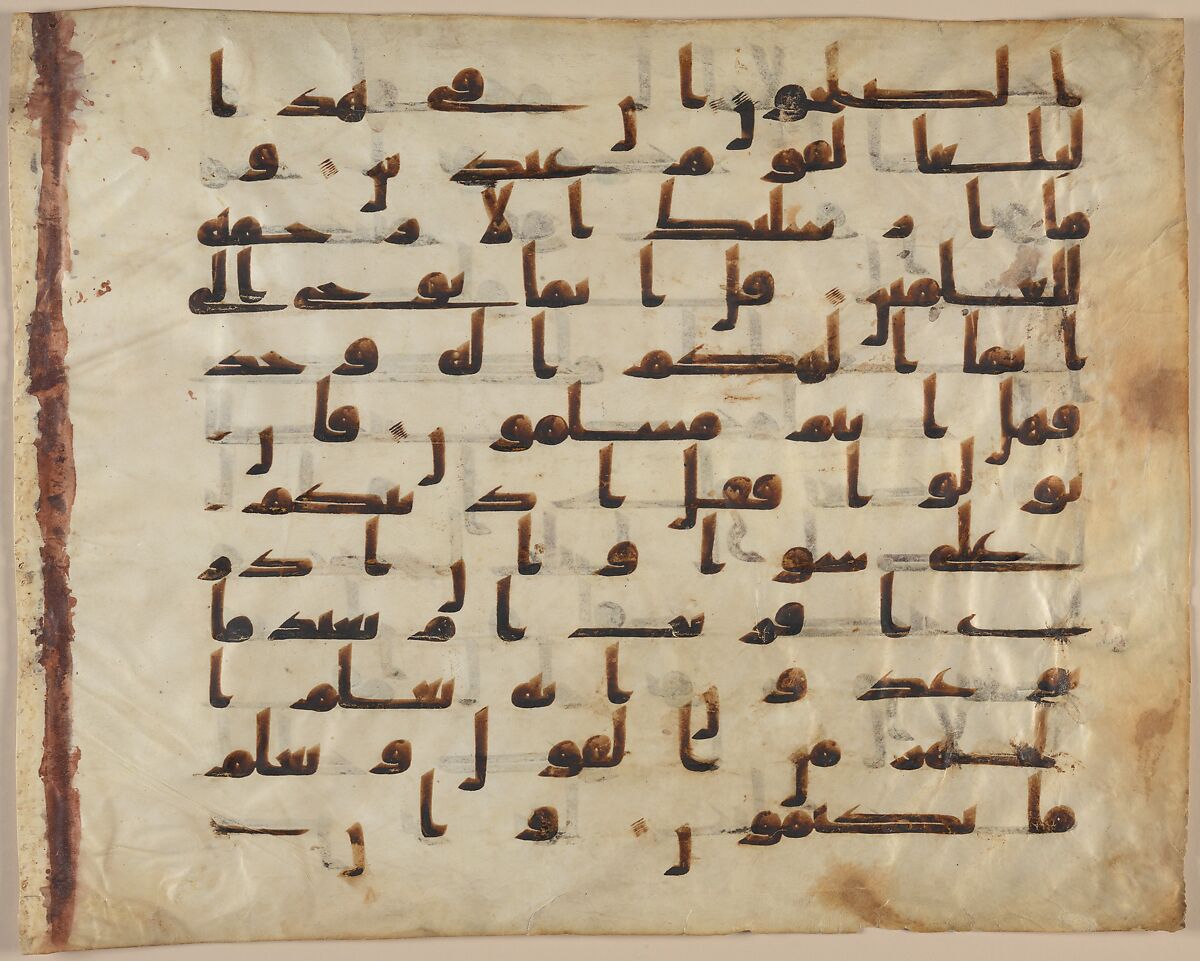 ا الصلحون ان في هذا
لبلغا لقوم عبدين و
ما ارسلنك الا رحمة
للعلمين قل انما يوحى الي
انما الهكم اله وحد
فهل انتم مسلمون فان
تولوا فقل اذنتكم
على سوا وان ادر
ى اقريب ام بعيد ما
توعدون انه يعلم ا
لجهر من القول ويعلم
ما تكتمون وان